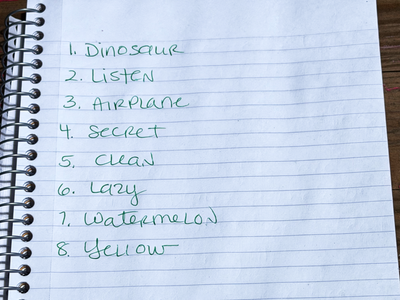 1. Dinosaur
2. Listen
3. Airplane
4. Secret
5. Clean
6. Lazy
7. Watermelon
8. Yellow